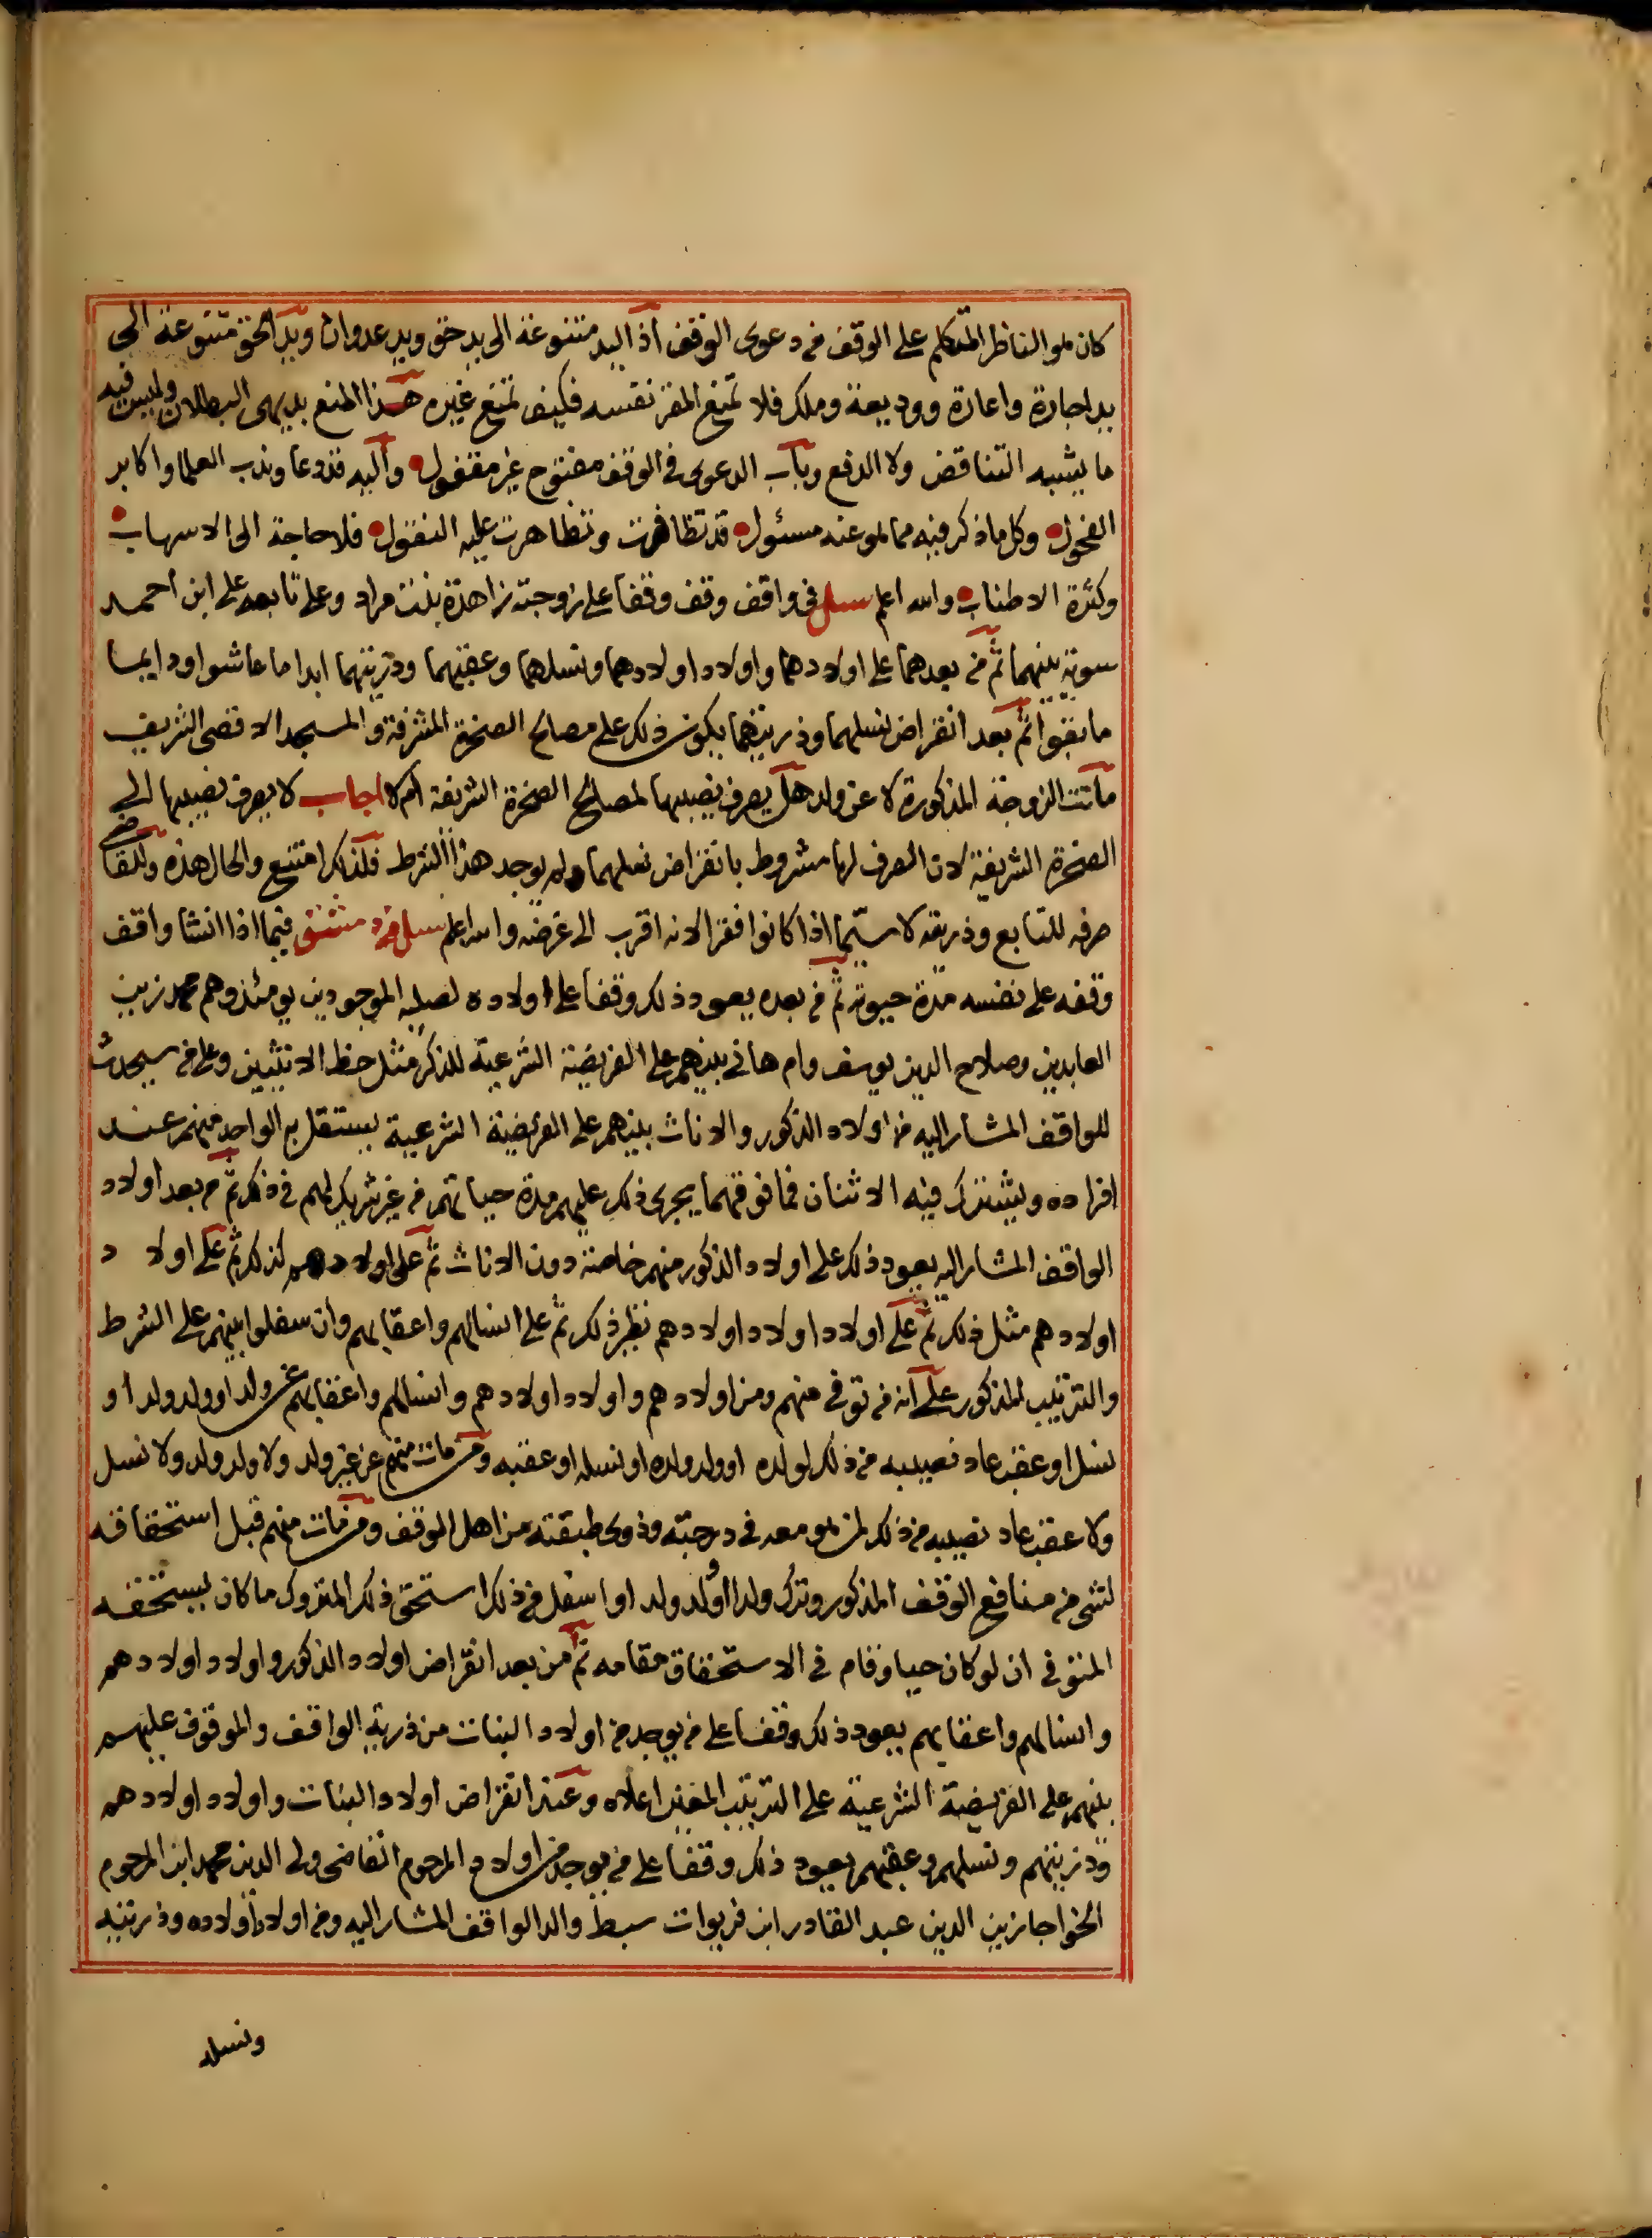 كان هو الناظر المتكلم على الوقف في دعوى الوقف اذ اليد متنوعة الى يد حق ويد عدوان ويد الحق متنوعة الى
يد اجارة واعارة ووديعة وملك فلا تمنع المقر نفسه فكيف تمنع غيره هذا المنع بديهى البطلان وليس فيه
ما يشبه التناقض ولا الدفع وباب الدعوى في الوقف مفتوح غير مقفول واليه قد دعا وندب العلما واكابر
الفحول وكل ما ذكر فيه مما هو عنه مسئول قد تظافرت وتظاهرت عليه النقول فلا حاجة الى الاسهاب
وكثرة الاطناب والله اعلم سئل في واقف وقف وقفا على زوجته زاهدة بنت مراد وعلى تابعه على ابن احمد
سوية بينهما ثم من بعدهما على اولادهما واولاد اولادهما ونسلهما وعقبهما وذريتهما ابدا ما عاشوا ودايما
ما بقوا ثم بعد انقراض نسلهما وذريتهما يكون ذلك على مصالح الصخرة المشرفة والمسجد الاقصى الشريف
ماتت الزوجة المذكورة لا عن ولد هل يصرف نصيبها لمصالح الصخرة الشريفة ام لا اجاب لا يصرف نصيبها الى
الصخرة الشريفة لان الصرف لها مشروط بانقراض نسلهما ولم يوجد هذا الشرط فلذلك امتنع والحال هذه وللقاضى
صرفه للتابع وذريته لا سيما اذا كانوا فقرا لانه اقرب الى غرضه والله اعلم سئل من دمشق فيما اذا انشا واقف
وقفه على نفسه مدة حيوته ثم من بعده يعود ذلك وقفا على اولاده لصلبه الموجودين يومئذ وهم محمد زين
العابدين وصلاح الدين يوسف وام هاني بينهم على الفريضة الشرعية للذكر مثل حظ الانثيين وعلى من سيحدث
للواقف المشار اليه من اولاده الذكور والاناث بينهم على الفريضة الشرعية يستقل به الواحد منهم عند
افراده ويشترك فيه الاثنان فما فوقهما يجرى ذلك عليهم مدة حياتهم من غير شريك لهم في ذلك ثم من بعد اولاد
الواقف المشار اليه يعود ذلك على اولاد الذكور منهم خاصة دون الاناث ثم على اولادهم كذلك ثم على اولاد
اولادهم مثل ذلك ثم على اولاد اولاد اولادهم نظير ذلك ثم على انسالهم واعقابهم وان سفلوا بينهم على الشرط
والترتيب المذكور على انه من توفى منهم ومن اولادهم واولاد اولادهم وانسالهم واعقابهم عن ولد او ولد ولد او
نسل او عقب عاد نصيبه من ذلك لولده او ولد ولده او نسله او عقبه ومن مات منهم عن غير ولد ولا ولد ولد ولا نسل
ولا عقب عاد نصيبه من ذلك لمن هو معه في درجته وذوى طبقته من اهل الوقف ومن مات منهم قبل استحقاقه
لشى من منافع الوقف المذكور وترك ولدا او ولد ولد او اسفل من ذلك استحق ذلك المتروك ما كان يستحقه
المتوفى ان لو كان حيا وقام في الاستحقاق مقامه ثم من بعد انقراض اولاد الذكور واولاد اولادهم
وانسالهم واعقابهم يعود ذلك وقفا على من يوجد من اولاد البنات من ذرية الواقف والموقوف عليهم
بينهم على الفريضة الشرعية على الترتيب المعين اعلاه وعند انقراض اولاد البنات واولاد اولادهم
وذريتهم ونسلهم وعقبهم يعود ذلك وقفا على من يوجد من اولاد المرحوم القاضى ولى الدين محمد ابن المرحوم
الخواجا زين الدين عبد القادر ابن قريوات سبط والد الواقف المشار اليه ومن اولاد اولاده وذريته
ونسله